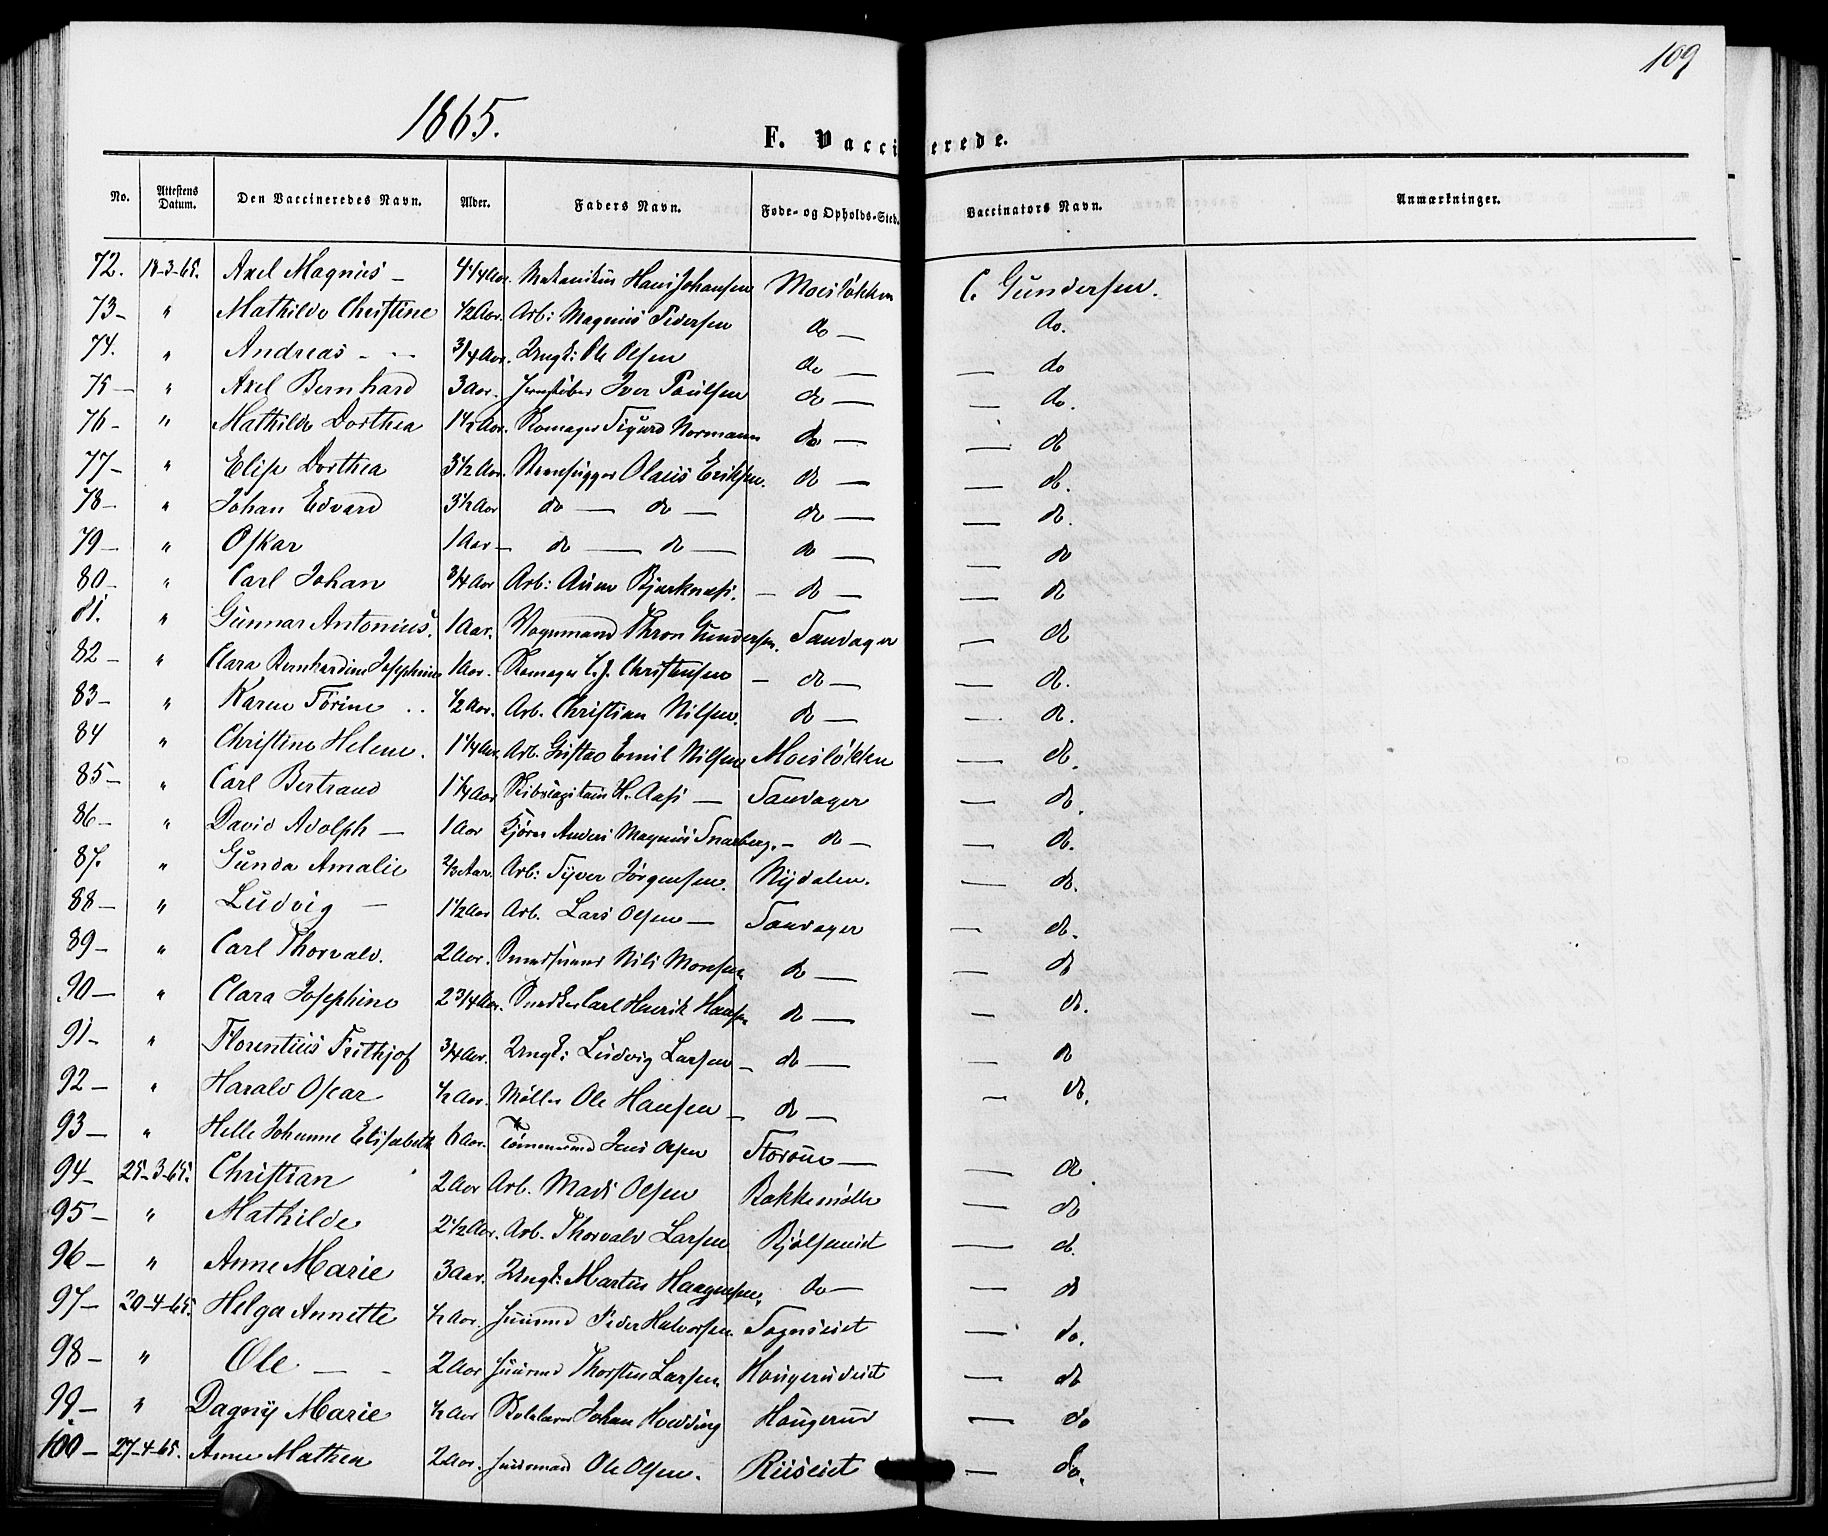 109
1865.
F. Vaccinerede.
No. Attestens Datum. Den Vaccineredes Navn. Alder. Faders Navn. Føde- og Opholds-Sted. Vaccinators Navn. Anmærkninger.
72. 18-3-65. Axel Magnus - 4 1/4 Aar. Hans Johansen C. Gundersen.
73- " Mathilde Christine 1/2 Aar. Arb: Magnus Pedersen do - do.
74. " Andreas - - 3/4 Aar. Ungk: Ole Olsen do - - do
75- " Axel Bernhard 3 Aar. Iver Paulsen do - - do.
76- " Mathilde Dorthea 1 1/2 Aar. Skomager Sigurd Normann do - - do
77- " Elise Dorthea 3 1/2 Aar. Steenhugger Olaus Eriksen. do - - do.
78- " Johan Edvard 3 1/2 Aar do - do - do - - do.
79- " Oskar 1 Aar - do - do - do - - do
80- " Carl Johan 3/4 Aar Arb: Bjerknæs. - do - - do
81. " Gunnar Antonius. 1 Aar. Vognmand Thron Gundersen. Sandager - do
82- " Clara Bernhardine Josephine 1 Aar. Skomager C. J. Christensen - do - - do.
83- " Karen Torine . . 1/2 Aar. Arb. Christian Nilsen. do - - do.
84 " Christine Helene. 1 1/4 Aar. Arb. Gustav Emil Nilsen - do.
85- " Carl Bertrand 1 1/4 Aar Skibscapitain H. Aass - Sandager - do.
86- " David Adolph - 1 Aar Anders Magnus Snarberg. - do - - do.
87. " Gunda Amalie 2/3 Aar. Arb: Syver Jørgensen. Nydalen. - do.
88- " Ludvig - 1 1/2 Aar Arb. Lars Olsen - Sandager - do.
89- " Carl Thorvald. 2 Aar. Nils Monsen do - - do
90- " Clara Josephine 2 3/4 Aar. Snedker Carl Henrik Hansen do - - do.
91- " Florentius Frithjof 3/4 Aar. Ungk: Ludvig Larsen - do - - do
92- " Harald Oscar 1/2 Aar. Møller Ole Hansen - do - - do.
93- " Helle Johanne Elisabeth 6 Aar. Tømmermd Jens Olsen -
94- 25-3-65. Christian 2 Aar Arb. Mads Olsen Bakkemølle - do.
95- " Mathilde 2 1/2 Aar. Arb. Thorvald Larsen Bjølseneiet - do
96- " Anne Marie 3 Aar. Ungk: Martin Haagensen. do - - do.
97- 20-4-65. Helga Annette 1/2 Aar. Huusmd Peder Halvorsen. Sognseiet - do
98- " Ole - - 2 Aar Huusmd Thorsten Larsen. Hougerudeiet - do.
99- " Dagny Marie 1/2 Aar Skolelærer Johan Hovding Hougerud - do
100- 27-4-65. Anne Mathea 2 Aar. Huusmand Ole Olsen. Riiseiet - do
- do.